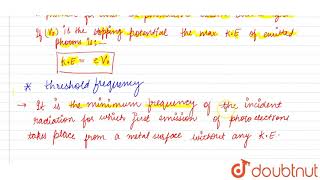 If (V₀) is the stopping potential the max K.E of emitted
photons is:-
K.E = eV₀
* threshold frequency
→ It is the minimum frequency of the incident
radiation for which first emission of photo electrons
takes place from a metal surface without any K.E.
doubtnut